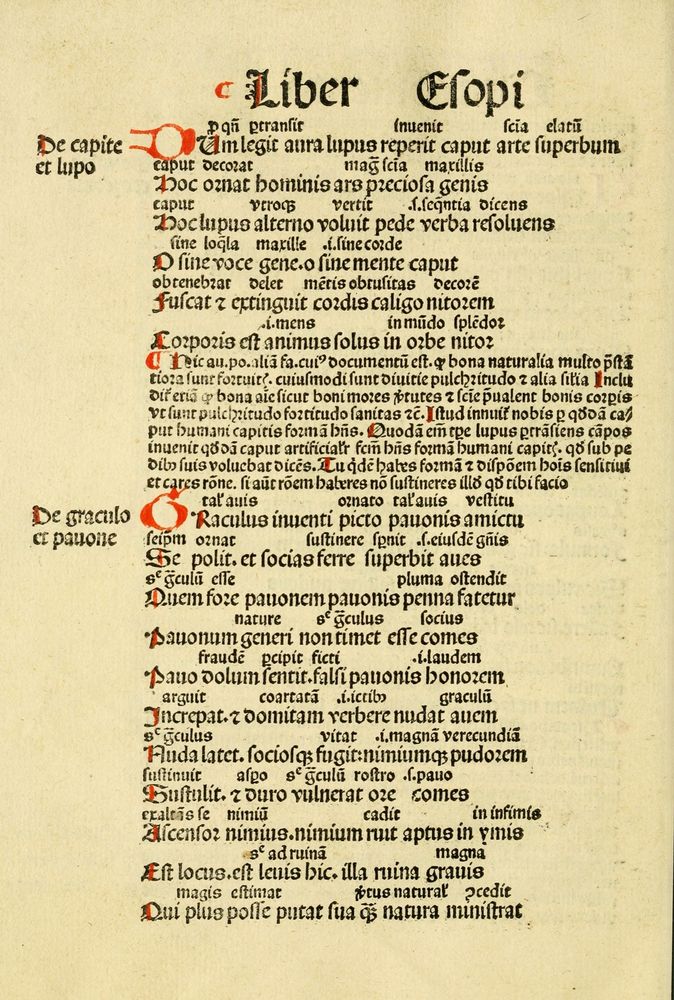 ¶ Liber Esopi
ꝑ qn̄ ꝑtransit inuenit scīa elatū
De capite
et lupo
DUm legit aura lupus reperit caput arte superbum
caput decorat maḡ scīa maxillis
Hoc ornat hominis ars preciosa genis
caput vtroqꝫ vertit .s.seqn̄tia dicens
Hoc lupus alterno voluit pede verba resoluens
sine loq̄la maxille .i.sine corde
O sine voce gene.o sine mente caput
obtenebrat delet mētis obtusitas decorē
Fuscat ⁊ extinguit cordis caligo nitorem
.i.mens in mūdo splēdor
Corporis est animus solus in orbe nitor
¶ Hic au.po.aliā fa.cuiꝰ documentū est.ꝙ bona naturalia multo p̄stā
tiora sunt fortuitꝭ. cuiusmodi sunt diuitie pulchritudo ⁊ alia sil'ia Inclu
dit' etiā ꝙ bona aīe sicut boni mores ꝟtutes ⁊ scīe p̄ualent bonis corꝑis
vt sunt pulchritudo fortitudo sanitas ⁊c̄. Istud innuit' nobis ꝑ qd̄dā ca/
put humani capitis formā hn̄s. Quodā em̄ tꝑe lupus ꝑtrāsiens cāpos
inuenit qd̄dā caput artificialr' fcm̄ hn̄s formā humani capitꝭ. qd̄ sub pe
dibꝰ suis voluebat dicēs. Tu qd̄ē habes formā ⁊ dispōem hoīs sensitiui
et cares rōne. si aūt rōem haberes nō sustineres illd̄ qd̄ tibi facio
tal' auis ornato tal' auis vestitu
De graculo
et pauone
GRaculus inuenti picto pauonis amictu
seipm̄ ornat sustinere sꝑnit .s.eiusdē gn̄is
Se polit. et socias ferre superbit aues
s͛ ḡculū esse pluma ostendit
Quem fore pauonem pauonis penna fatetur
nature s͛ ḡculus socius
Pauonum generi non timet esse comes
fraudē ꝑcipit ficti .i.laudem
Pauo dolum sentit.falsi pauonis honorem
arguit coartatā .i.ictibꝰ graculū
Increpat.⁊ domitam verbere nudat auem
s͛ ḡculus vitat .i.magnā verecundiā
Nuda latet. sociosqꝫ fugit:nimiumqꝫ pudorem
sustinuit asꝑo s͛ ḡculū rostro .s.pauo
Sustulit. ⁊ duro vulnerat ore comes
exaltās se nimiū cadit in infimis
Ascensor nimius.nimium ruit aptus in ymis
s͛ ad ruinā magna
Est locus.est leuis hic. illa ruina grauis
magis estimat ꝟtus natural' ꝓcedit
Qui plus posse putat sua qꝫ̄ natura ministrat